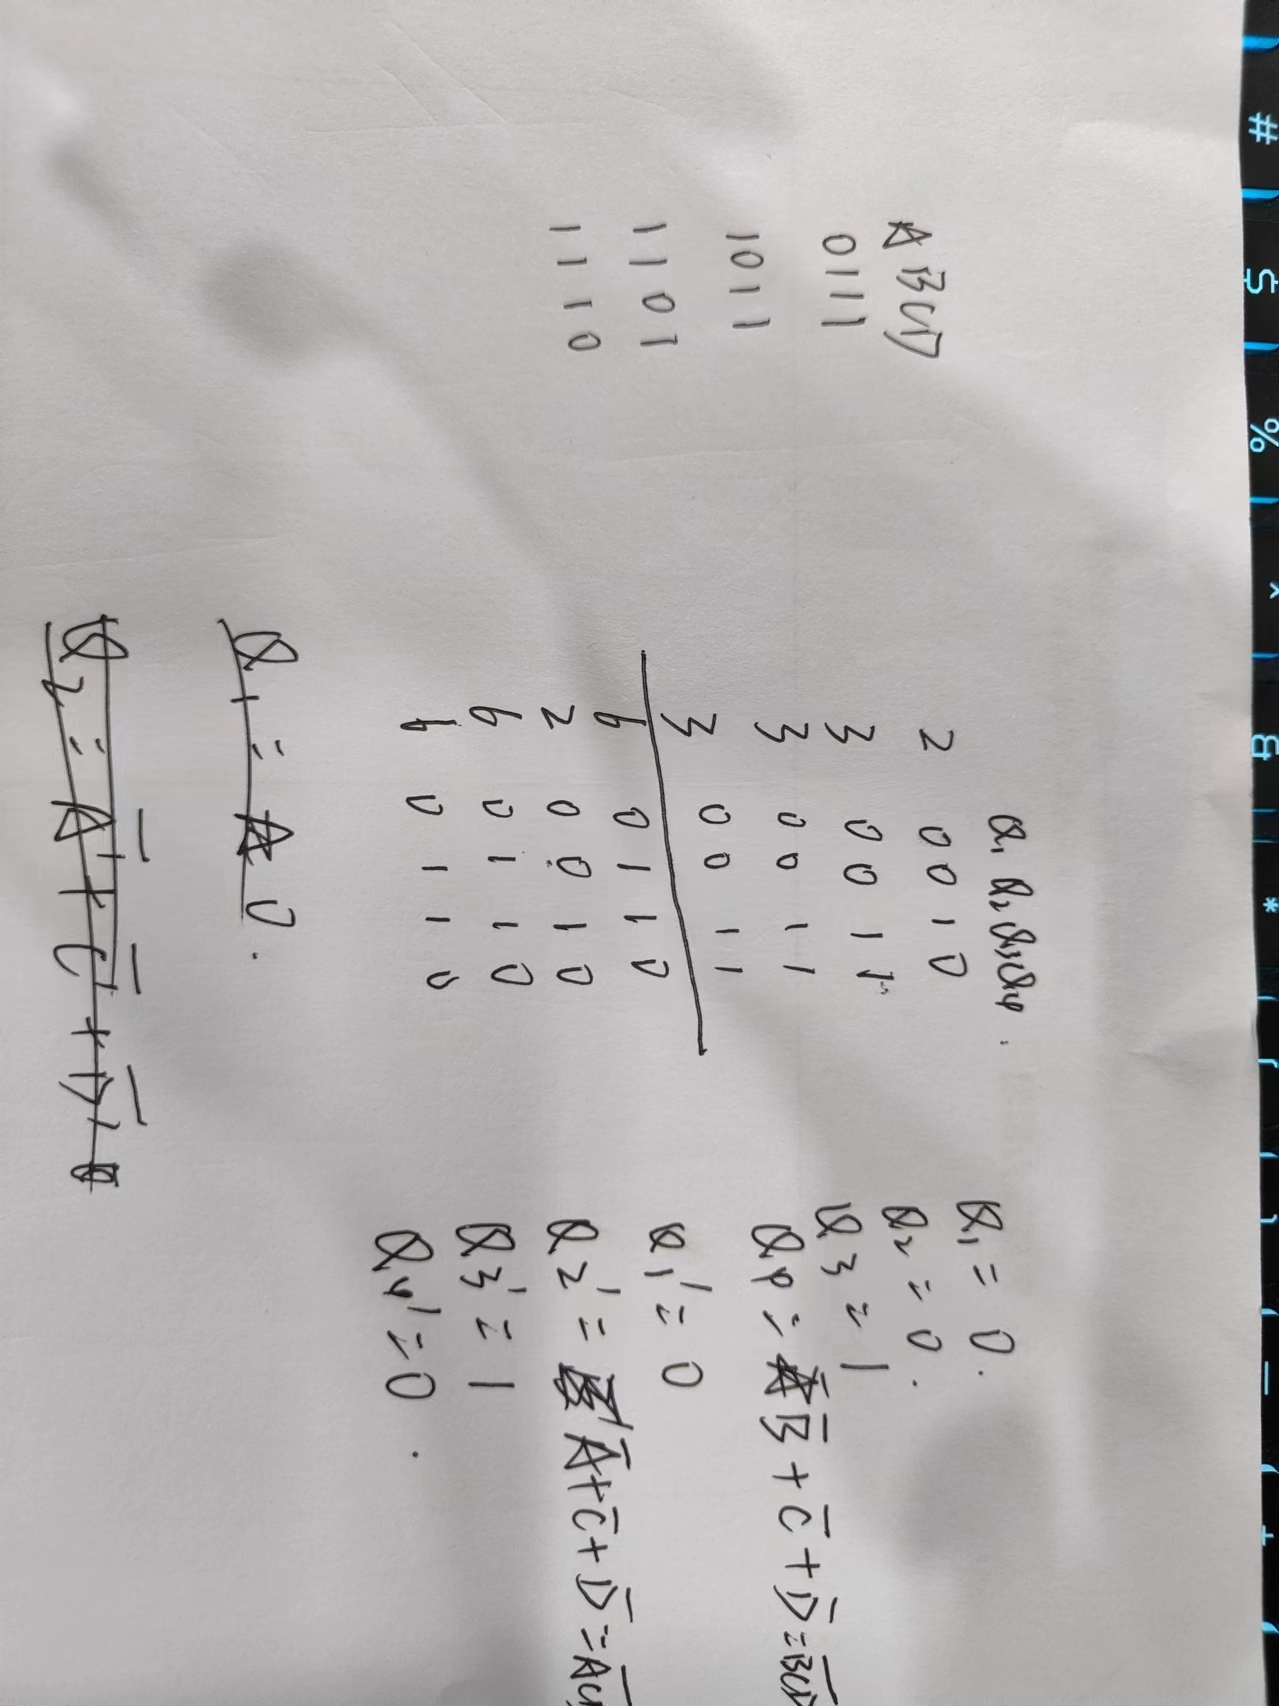 ABCD
0111
1011
1101
1110
Q₁ Q₂ Q₃ Q₄
2 0010
3 0011
3 0011
3 0011
6 0110
2 0010
6 0110
0110
Q₁ = 0
Q₂ = 0
Q₃ = 1
Q₄ = B̅ + C̅ + D̅ =
Q₁' = 0
Q₂' = A̅ + C̅ + D̅ =
Q₃' = 1
Q₄' = 0
Q₁ = 0
Q₂ = A̅ + C̅ + D̅
# $ % & * ( +